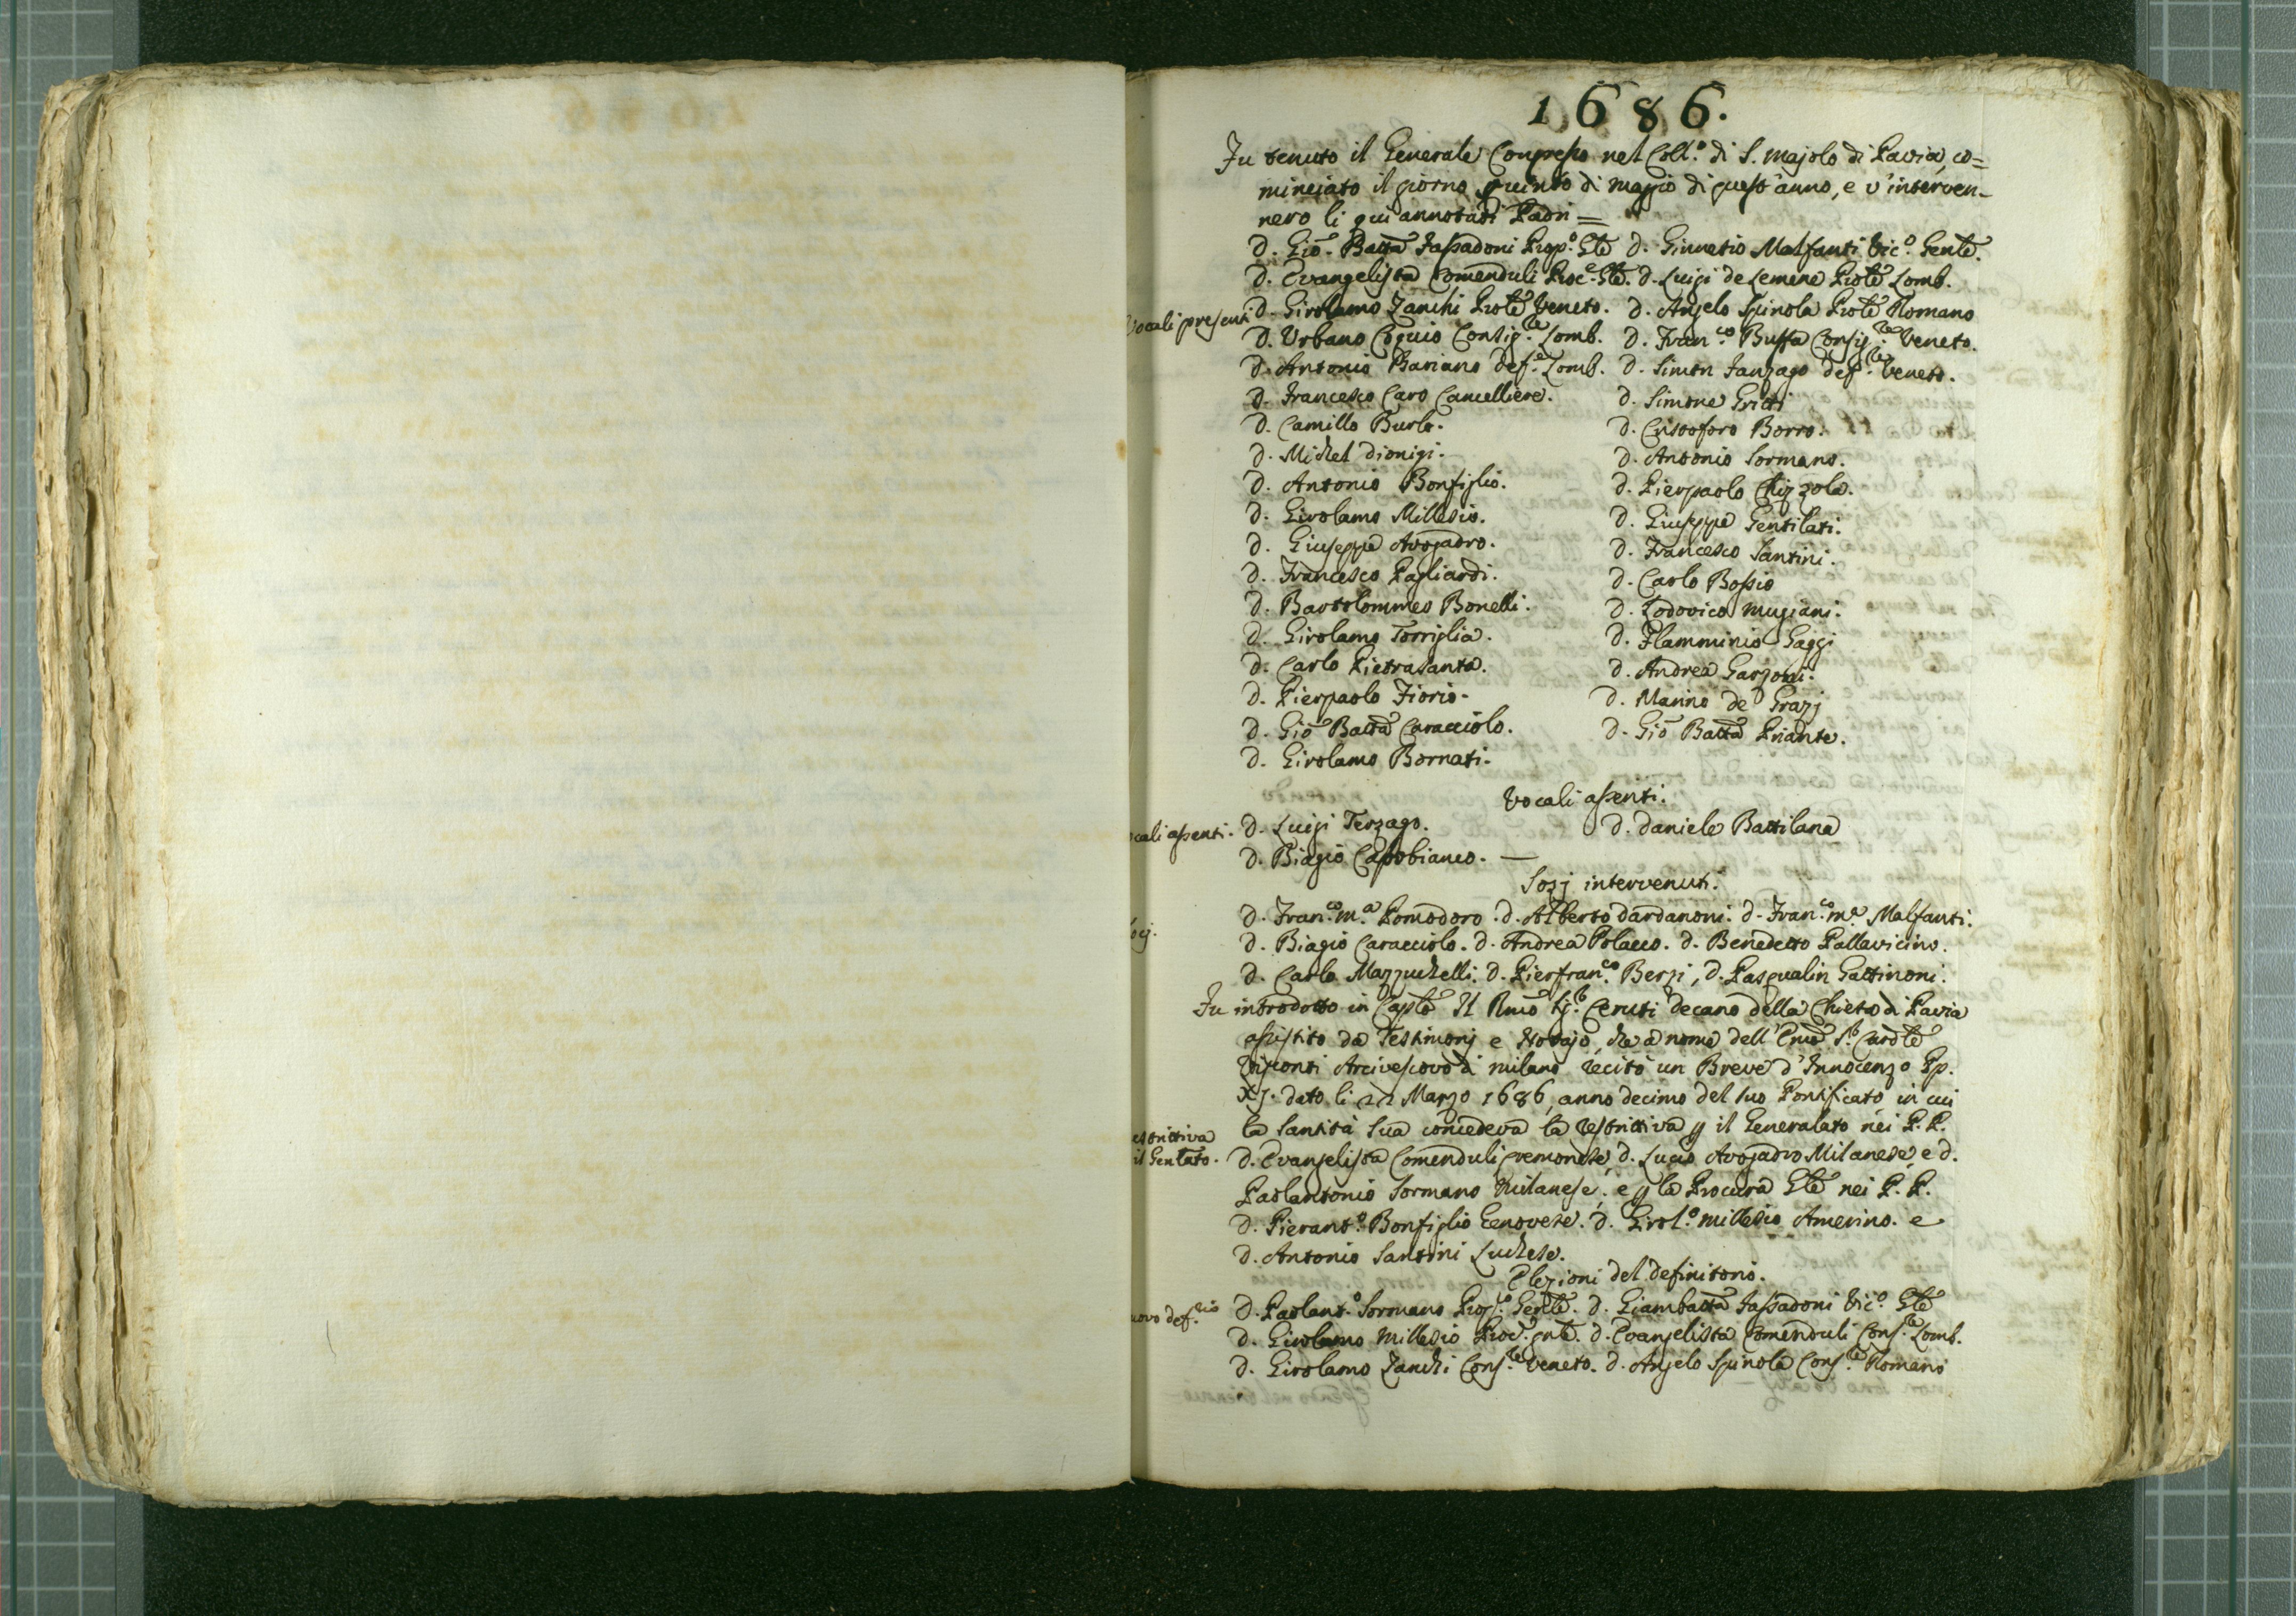 1686.
Fu tenuto il Generale Congresso nel Coll.º di S. Majolo di Pavia, co=
minciato il giorno quinto di maggio di quest'anno, e v'interven-
nero li qui annotati Padri =
D. Gio. Batta Fassadoni Prep.º Gle D. Ginnesio Malfanti Vic.º Genle.
D. Evangelista Comenduli Proc.e Gle. D. Luigi de Lemene Prole Lomb.
Vocali presenti D. Girolamo Zanchi Prole Veneto. D. Angelo Spinola Prole Romano
D. Urbano Coquio Consig.re Lomb. D. Fran.co Buffa Consig.re Veneto.
D. Antonio Bariano def.e Lomb. D. Simon Fanzago def.re Veneto.
D. Francesco Caro Cancelliere. D. Simone Gritti
D. Camillo Burlo. D. Cristoforo Borro.
D. Michel Dionigi. D. Antonio Sormano.
D. Antonio Bonfiglio. D. Pierpaolo Chizzola.
D. Girolamo Millesio. D. Giuseppe Gentilati.
D. Giuseppe Avogadro. D. Francesco Santini.
D. Francesco Pagliardi. D. Carlo Bossio
D. Bartolommeo Bonelli. D. Lodovico Mugiani.
D. Girolamo Torriglia. D. Flamminio Gaggi
D. Carlo Pietrasanta. D. Andrea Garzoni.
D. Pierpaolo Fiorio. D. Marino de Grazj
D. Gio Batta Caracciolo. D. Gio Batta Priante.
D. Girolamo Bornati.
Vocali assenti.
ocali assenti. D. Luigi Terzago. D. Daniele Battilana
D. Biagio Capobianco. —
Sozj intervenuti.
D. Fran.co M.a Pomodoro. D. Alberto Dardanoni. D. Fran.co M.a Malfanti.
ocj. D. Biagio Caracciolo. D. Andrea Polacco. D. Benedetto Pallavicino.
D. Carlo Mazzuchelli. D. Pierfran.co Berzi, D. Pasqualin Gattinoni.
Fu introdotto in Caplo Il Rmo Sig.r Ceruti decano della Chiesa di Pavia
assistito da Testimonj e Notajo, che a nome dell'Emo S.r Cardle
Visconti Arcivescovo di milano recitò un Breve d'Innocenzo Pp.
XI. dato li 22 Marzo 1686, anno decimo del suo Pontificato in cui
estrittiva la Santità Sua concedeva la restrittiva p il Generalato nei P. P.
il Genlato. D. Evangelista Comenduli Cremonese, D. Lucio Avogadro Milanese, e D.
Paolantonio Sormano Milanese; e p la Procura Gle nei P. P.
D. Pierant.º Bonfiglio Genovese. D. Girol.º Millesio Amerino. e
D. Antonio Santini Luchese.
Elezioni del definitorio.
uovo def.rio D. Paolant.º Sormano Prep.to Genle. D. Giambatta Fassadoni Vic.º Gle
D. Girolamo Millesio Proc.e gnle. D. Evangelista Comenduli Cons.re Lomb.
D. Girolamo Zanchi Cons.re Veneto. D. Angelo Spinola Cons.re Romano